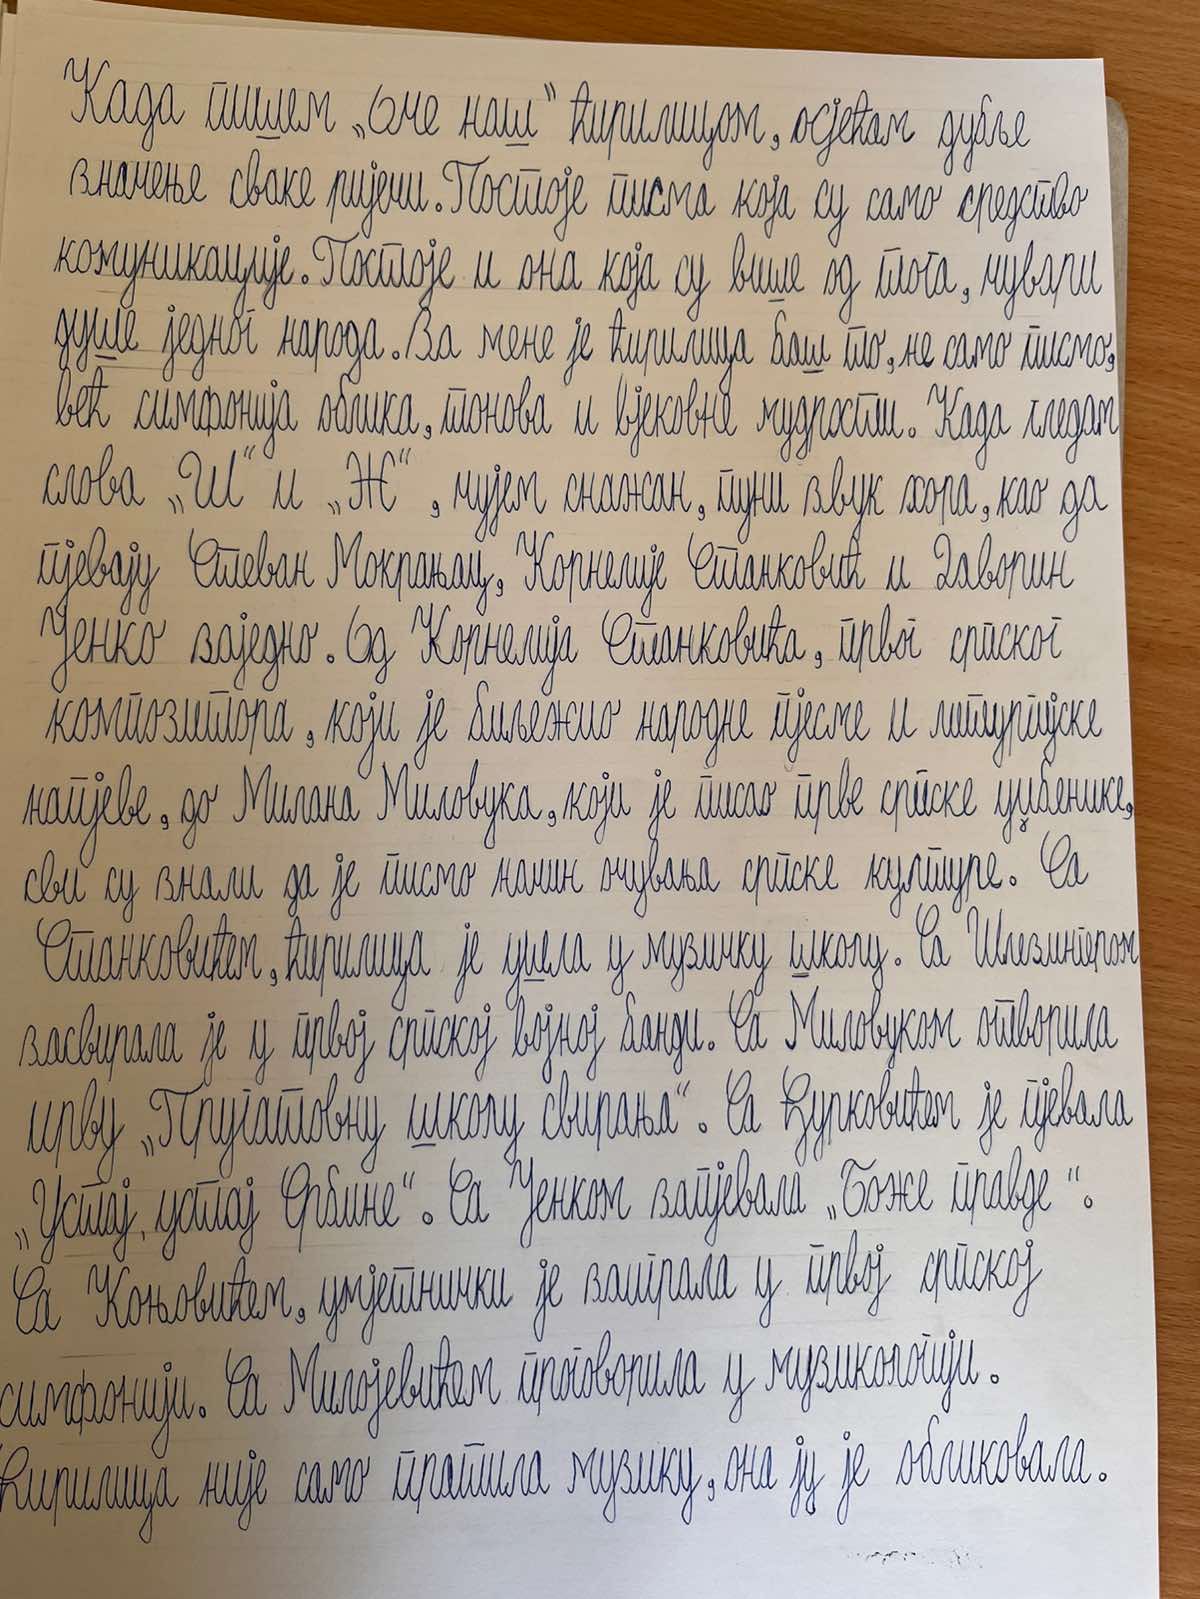 Када пишем „Оче наш“ ћирилицом, осјећам дубље
значење сваке ријечи. Постоје писма која су само средство
комуникације. Постоје и она која су више од тога, чувари
душе једног народа. За мене је ћирилица баш то, не само писмо,
већ симфонија облика, тонова и вјековне мудрости. Када гледам
слова „Ш“ и „Ж“, чујем снажан, пуни звук хора, као да
пјевају Стеван Мокрањац, Корнелије Станковић и Даворин
Јенко заједно. Од Корнелија Станковића, првог српског
композитора, који је биљежио народне пјесме и литургијске
напјеве, до Милана Миловука, који је писао прве српске уџбенике,
сви су знали да је писмо начин очувања српске културе. Са
Станковићем, ћирилица је ушла у музичку школу. Са Шлезингером
засвирала је у првој српској војној банди. Са Миловуком отворила
прву „Приватовну школу свирања“. Са Ђурковићем је пјевала
„Устај, устај Србине“. Са Јенком запјевала „Боже правде“.
Са Коњовићем, умјетнички је заиграла у првој српској
симфонији. Са Милојевићем проговорила у музикологији.
Ћирилица није само пратила музику, она ју је обликовала.